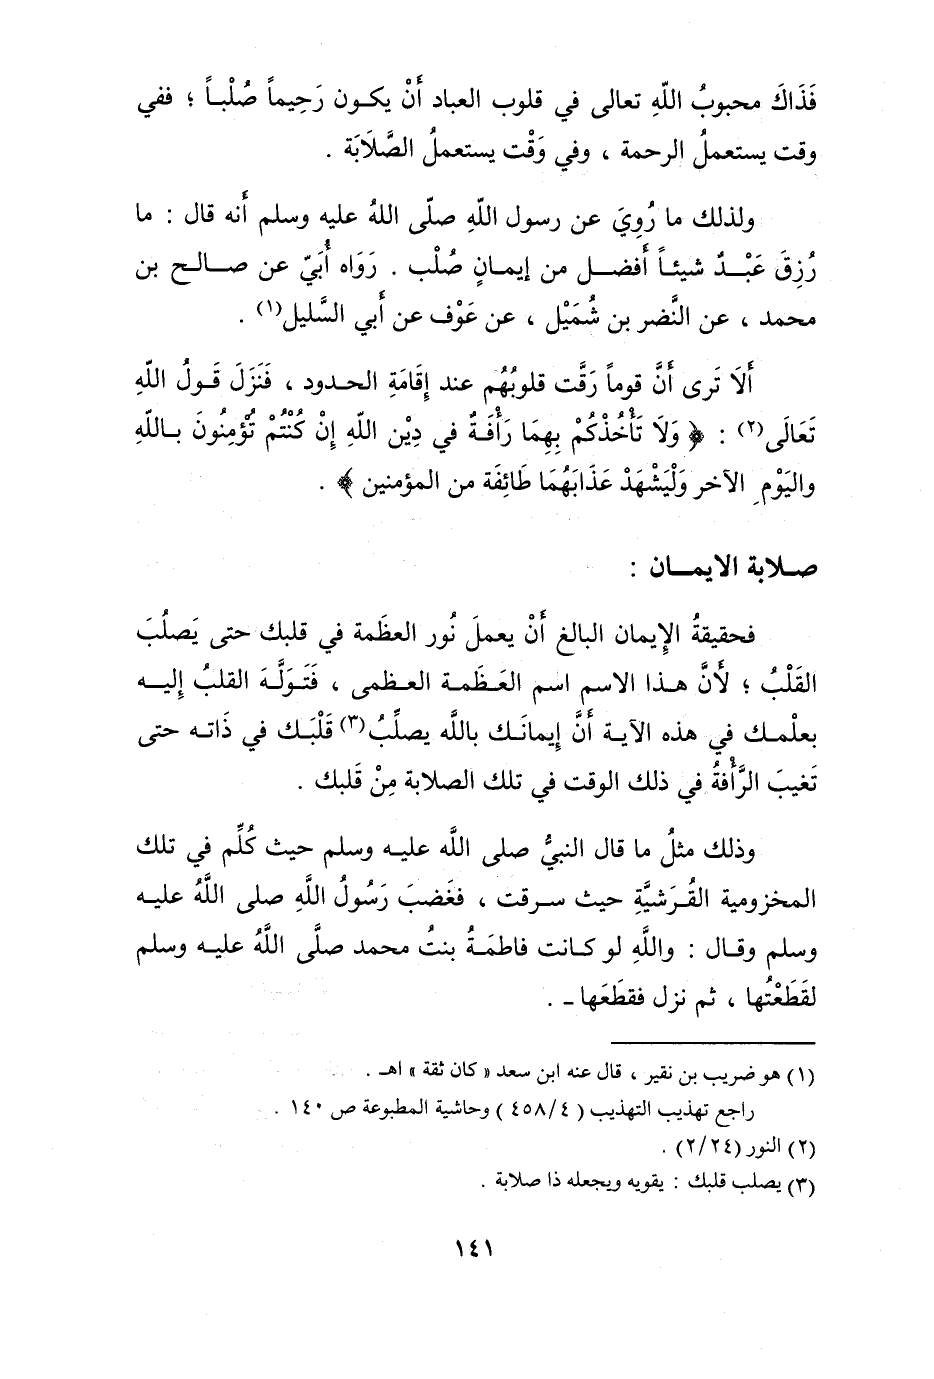 فَذَاكَ محبوبُ اللّهِ تعالى في قلوب العباد أَنْ يكون رَحِيماً صُلْباً ؛ ففي
وقت يستعملُ الرحمة ، وفي وَقْت يستعملُ الصَّلَابَة .
ولذلك ما رُوِيَ عن رسول اللّهِ صلّى اللهُ عليه وسلم أَنه قال : ما
رُزِقَ عَبْدٌ شيئاً أَفضل من إيمانٍ صُلْب . رَوَاه أُبَيّ عن صالح بن
محمد ، عن النَّضر بن شُمَيْل ، عن عَوْف عن أَبي السَّليل(١) .
أَلَا تَرى أَنَّ قوماً رَقَّت قلوبُهُم عند إِقَامَةِ الحدود ، فَنَزَلَ قَولُ اللّهِ
تَعَالَى(٢) : ﴿ وَلَا تَأْخُذْكُمْ بِهِمَا رَأْفَةٌ في دِيْن اللّهِ إِنْ كُنْتُمْ تُؤْمِنُونَ باللّهِ
واليَوْمِ الآخر وَلْيَشْهَدْ عَذَابَهُمَا طَائِفَة من المؤمنين ﴾ .
صلابة الايمان :
فحقيقةُ الإِيمان البالغ أَنْ يعملَ نُور العظَمة في قلبك حتى يَصلُبَ
القَلْبُ ؛ لأَنَّ هذا الاسم اسم العَظَمة العظمى ، فَتَوَلَّهَ القلبُ إِليه
بعلْمك في هذه الآية أَنَّ إِيمانَك باللَّه يصلِّبُ(٣) قَلْبَك في ذَاته حتى
تَغيبَ الرَّأْفةُ في ذلك الوقت في تلك الصلابة مِنْ قَلبك .
وذلك مثلُ ما قال النبيُّ صلى اللَّه عليه وسلم حيث كُلِّم في تلك
المخزومية القُرَشيَّةِ حيث سرقت ، فغَضبَ رَسُولُ اللَّهِ صلى اللَّهُ عليه
وسلم وقال : واللَّهِ لو كانت فاطمَةُ بنتُ محمد صلَّى اللَّهُ عليه وسلم
لقَطَعْتُها ، ثم نزل فقطَعَها ـ .
(١) هو ضريب بن نقير ، قال عنه ابن سعد « كان ثقة » اهـ .
راجع تهذيب التهذيب ( ٤/ ٤٥٨ ) وحاشية المطبوعة ص ١٤٠ .
(٢) النور (٢/٢٤) .
(٣) يصلب قلبك : يقويه ويجعله ذا صلابة .
١٤١